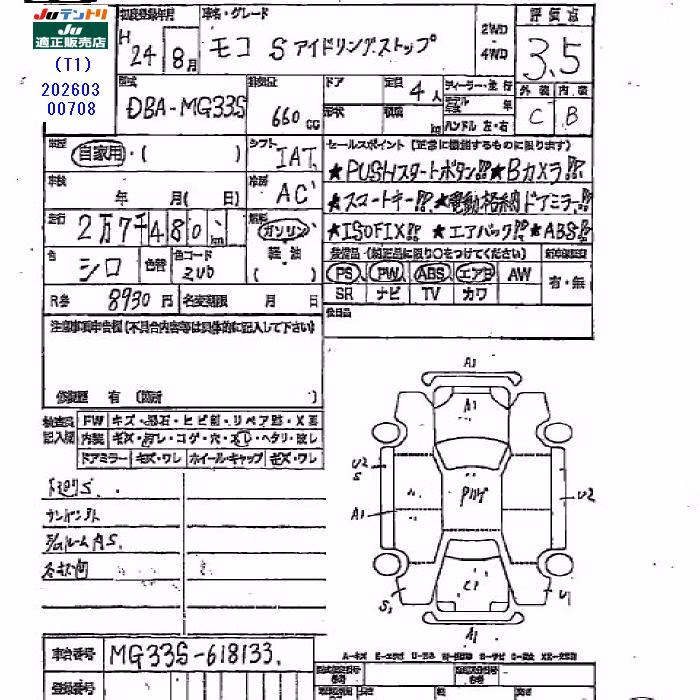 Juテントリ
Ju
適正販売店
(T1)
202603
00708
初度登録年月
H
24 8月
車名・グレード
モコ S アイドリングストップ
2WD
4WD
評価点
3.5
型式
DBA-MG33S
排気量
660 cc
ドア
形状
定員
4人
積載
kg
ディーラー・並行
モデル年式 年
ハンドル 左・右
外装 内装
C B
車歴
自家用・( )
シフト
IAT
セールスポイント (正常に機能するものに限ります)
★PUSHスタートボタン!!! ★Bカメラ!!!
★スマートキー!!! ★電動格納ドアミラー!!!
★ISOFIX!!! ★エアバック!!! ★ABS!!!
車検
年 月( 日)
冷房
AC
走行
2万7千480 km
燃料
ガソリン
軽油
( )
色
シロ
色替
色コード
ZUD
装備品 (純正品に限り○をつけてください)
PS PW ABS エアB AW
SR ナビ TV カワ
有・無
R券 8930 円
名変期限 月 日
後日品
注意事項申告欄 (不具合内容等は具体的に記入して下さい)
修復歴 有 (箇所 )
検査員
記入欄
FW キズ・飛石・ヒビ割・リペア跡・X要
内装 キズ・汚レ・コゲ・穴・スレ・ヘタリ・破レ
ドアミラー キズ・ワレ ホイールキャップ キズ・ワレ
下廻りS.
A1
A1
U2
S
Pルーフ
U2
A1
S1
U1
A1
車台番号 MG33S-618133.
登録番号